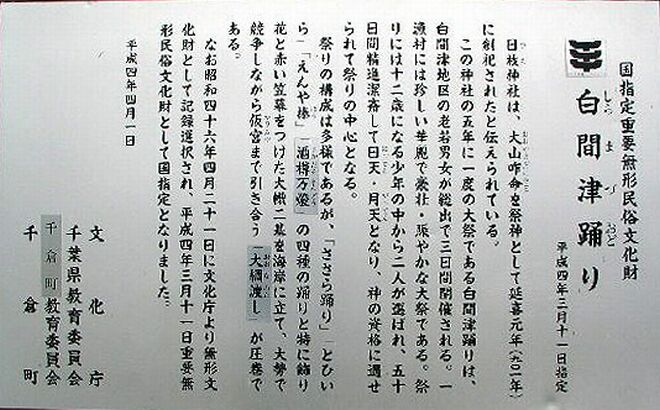 国指定重要無形民俗文化財
白間津踊り
平成四年三月十一日指定
日枝神社は、大山咋命を祭神として延喜元年(九〇一年)
に創祀されたと伝えられている。
この神社の五年に一度の大祭である白間津踊りは、
白間津地区の老若男女が総出で三日間開催される。一
漁村には珍しい華麗で豪壮・賑やかな大祭である。祭
りには十二歳になる少年の中から二人が選ばれ、五十
日間精進潔斎して日天・月天となり、神の資格に遇せ
られて祭りの中心となる。
祭りの構成は多様であるが、「ささら踊り」「とひい
ら」「えんや棒」「酒樽万燈」の四種の踊りと特に飾り
花と赤い笠幕をつけた大幟二基を海岸に立て、大勢で
競争しながら仮宮まで引き合う「大綱渡し」が圧巻で
ある。
なお昭和四十六年四月二十一日に文化庁より無形文
化財として記録選択され、平成四年三月十一日重要無
形民俗文化財として国指定となりました。
平成四年四月一日
文化庁
千葉県教育委員会
千倉町教育委員会
千倉町